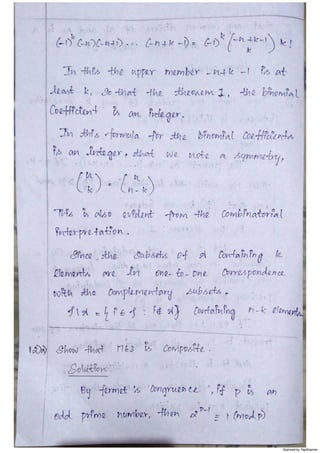 (-1)^k (-n)(-n+1) ... (-n+k-1) = (-1)^k (-n+k-1 k) k!
In this the upper member -n+k-1 is at
least k, so that the theorem 1, the binomial
Coefficient is an integer.
In this formula for the Binomial Coefficients
is an integer, that we note a symmetry,
(n k) = (n n-k)
This is also evident from the combinatorial
interpretation.
Since the subsets of containing k
elements are in one-to-one correspondence
with the complementary subsets.
containing n-k elements
Show that is composite.
Solution
By fermet's congruence, if p is an
odd prime number, then 2^p-1 ≡ 1 (mod p)
Scanned by TapScanner